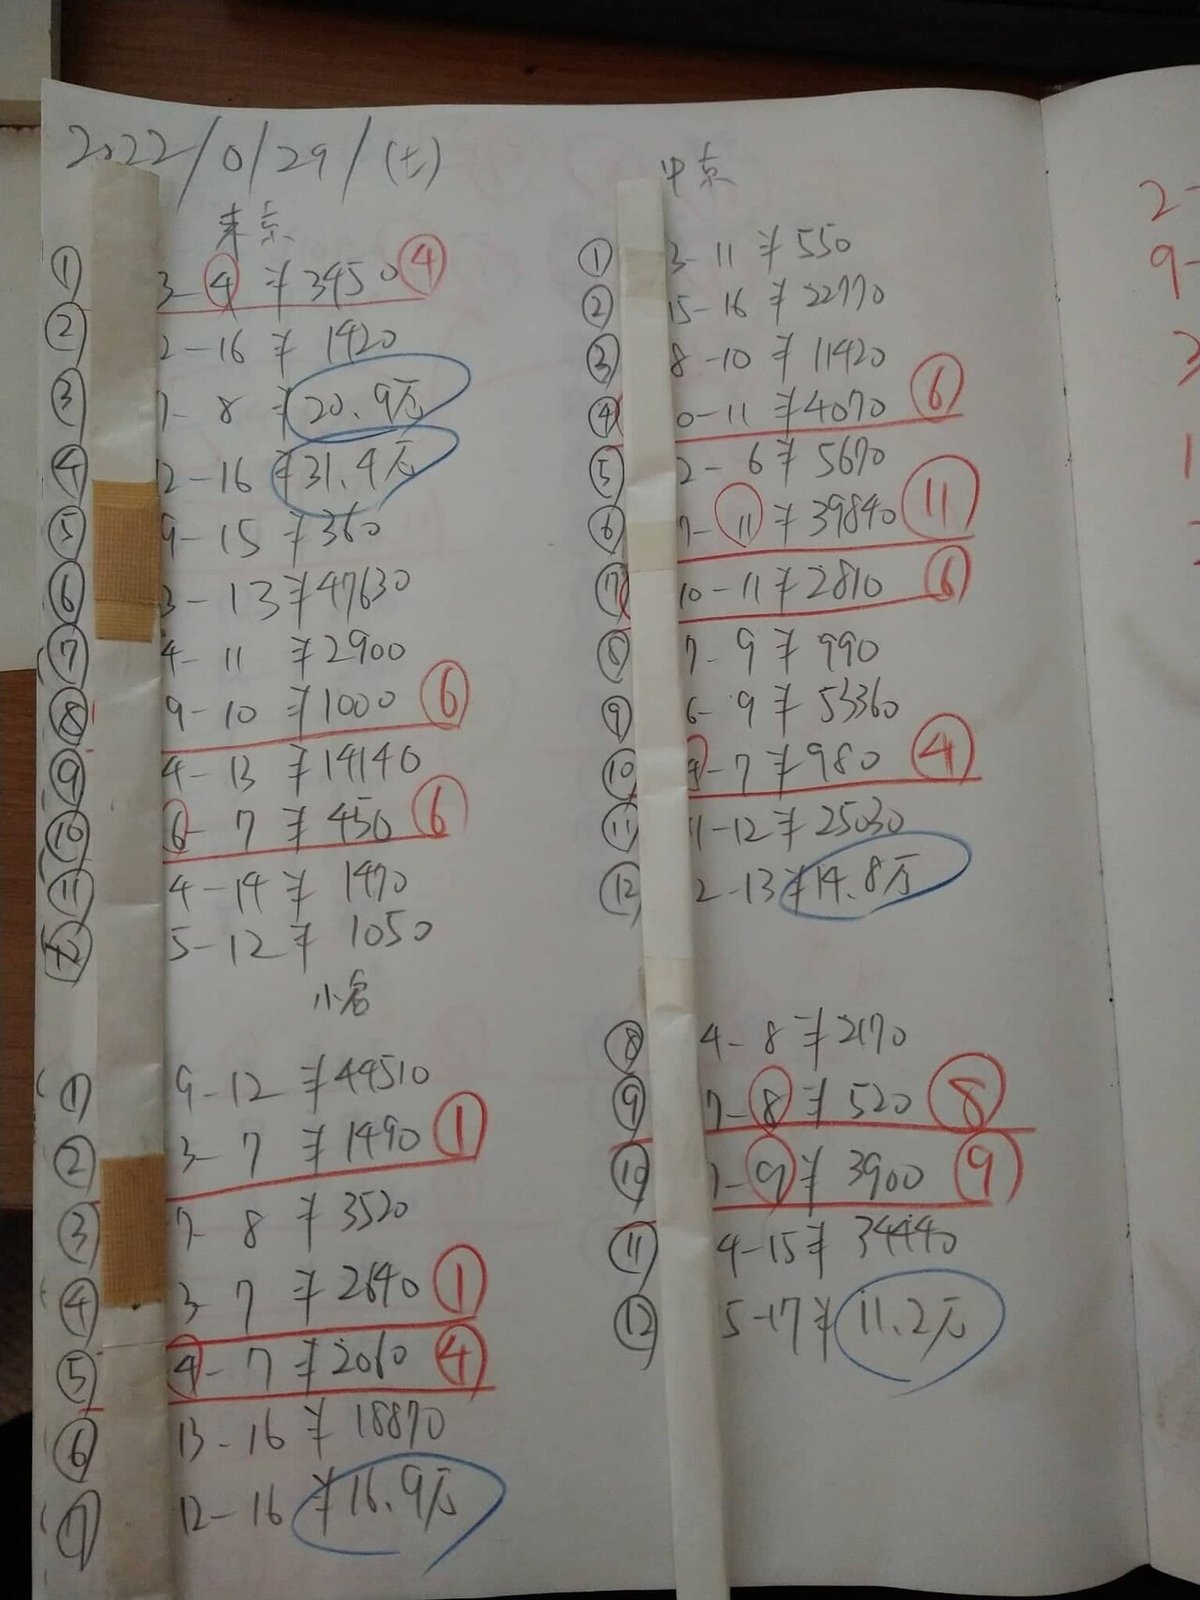 2022/0/29/(土)
東京
① 3-4 ¥3450 ④
② 2-16 ¥1420
③ 7-8 ¥20.9万
④ 12-16 ¥31.4万
⑤ 9-15 ¥360
⑥ 3-13 ¥47630
⑦ 4-11 ¥2900
⑧ 9-10 ¥1000 ⑥
⑨ 4-13 ¥14140
⑩ 6-7 ¥450 ⑥
⑪ 4-14 ¥1470
⑫ 5-12 ¥1050
小倉
① 9-12 ¥44510
② 3-7 ¥1490 ①
③ 7-8 ¥3520
④ 3-7 ¥2640 ①
⑤ 4-7 ¥2060 ④
⑥ 13-16 ¥18870
⑦ 12-16 ¥16.9万
中京
① 3-11 ¥550
② 15-16 ¥22770
③ 8-10 ¥11420
④ 0-11 ¥4070 ⑥
⑤ 2-6 ¥5670
⑥ 7-11 ¥39840 ⑪
⑦ 10-11 ¥2810 ⑥
⑧ 7-9 ¥990
⑨ 6-9 ¥53360
⑩ 4-7 ¥980 ④
⑪ 1-12 ¥25030
⑫ 2-13 ¥14.8万
⑧ 4-8 ¥2170
⑨ 7-8 ¥520 ⑧
⑩ -9 ¥3900 ⑨
⑪ 4-15 ¥34440
⑫ 5-17 ¥11.2万
2-
9-